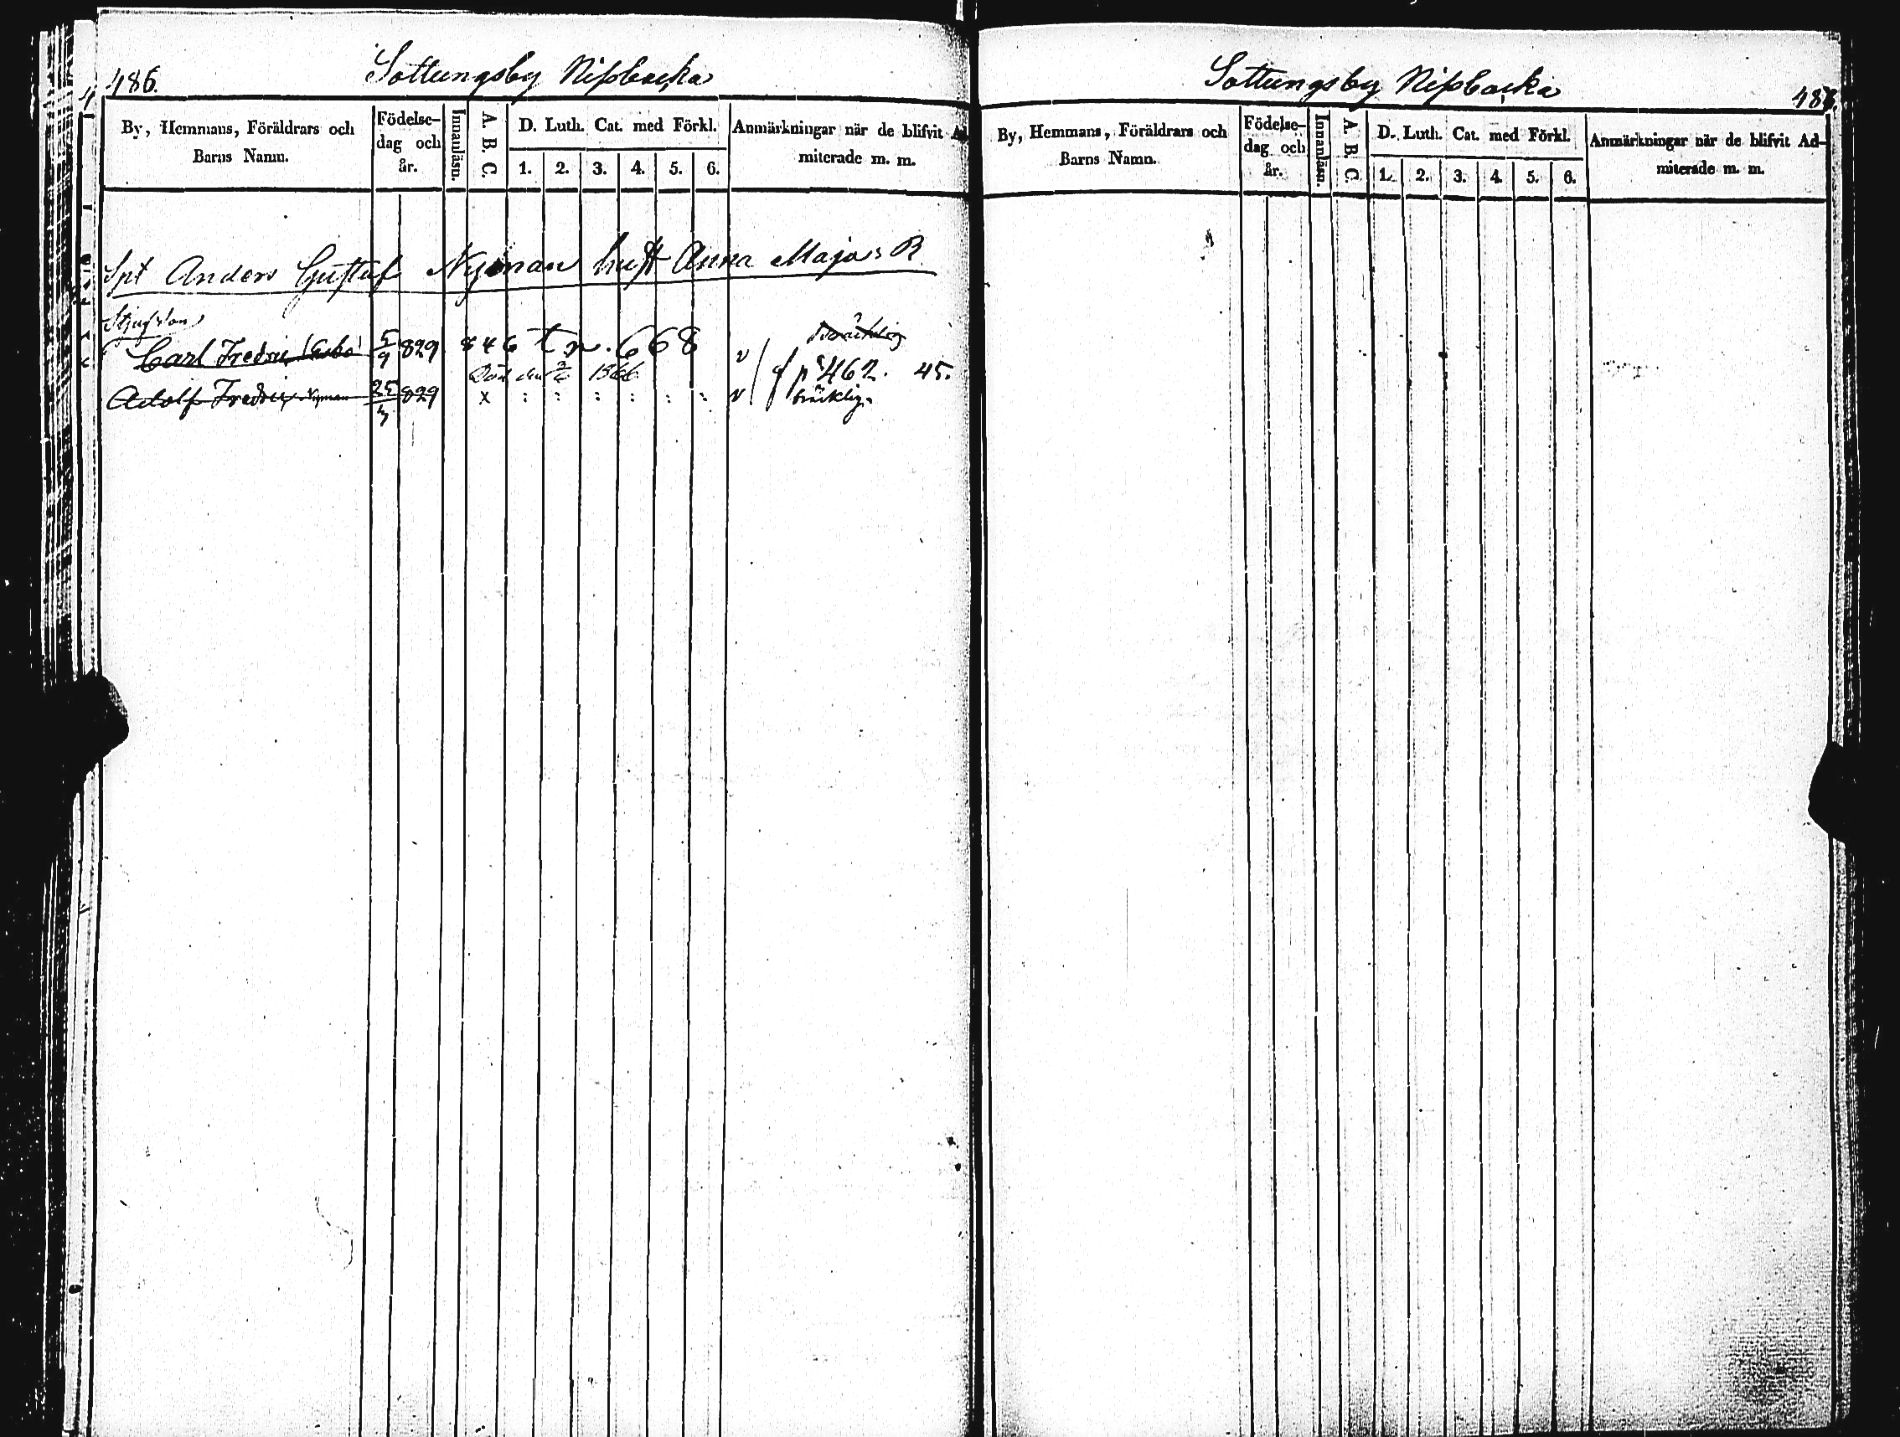 486.
Sottungsby Nissbacka
By, Hemmans, Föräldrars och
Barns Namn.
Födelse-
dag och
år.
Innanläsn.
A. B. C.
D. Luth. Cat. med Förkl.
1. 2. 3. 4. 5. 6.
Anmärkningar när de blifvit Ad-
miterade m. m.
Spt Anders Gustaf Nyman hust Anna Maja R
Stjufson
Carl Fredric 5/9 829 846 t n. 668
Död den 1866
f p 462. 45.
Adolf Fredric Nyman 25 829 x : : : : : : v bräcklig
Sottungsby Nissbacka
By, Hemmans, Föräldrars och
Barns Namn.
Födelse-
dag och
år.
Innanläsn.
A. B. C.
D. Luth. Cat. med Förkl.
1. 2. 3. 4. 5. 6.
Anmärkningar när de blifvit Ad-
miterade m. m.